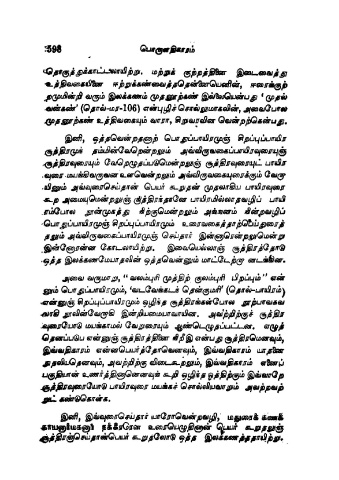 598 பொருளதிகாரம்
தொகுத்துக்காட்டலாயிற்று. மற்றுக் குற்றத்தினை இடைவைத்து
உத்திவகையினை ஈற்றுக்கண்வைத்ததென்னையெனின், ஈரைக்குற்
றமுமின்றி வரும் இலக்கணம் முதனூற்கண் இல்லையென்பது 'முதல்
வன்கண்' (தொல்-மர-106) என்புழிச்சொல்லுமாகலின், அவைபோல
முதனூற்கண் உத்திவகையும் வாரா, பிறவரலின் வென்றற்கென்பது.
இனி, ஒத்தவென்றதனாற் பொதுப்பாயிரமுஞ் சிறப்புப்பாயிர
சூத்திரமும் தம்மின்வேறென்றலும் அவ்விருவகைப்பாயிரவுரையுஞ்
சூத்திரவுரையும் வேறெழுதப்படுமென்றலுஞ் சூத்திரவுரையுட் பாயிர
வுரை மயங்கிவருவன உளவென்றலும் அவ்விருவகையுரைக்கும் வேறு
யினும் அவ்வுரைசெய்தான் பெயர் கூறதன் முதலாகிய பாயிரவுரை
கூற அமையுமென்றலுஞ் சூத்திரந்தானே பாயிரமில்லாதவழிப் பாயி
ரம்போல நூன்முகத்து நிற்குமென்றலும் அங்ஙனம் நின்றவழிப்
பொதுப்பாயிரமுஞ் சிறப்புப்பாயிரமும் உரைவகைத்தாற்பெய்துரைத்
தலும் அவ்விருவகைப்பாயிரமும் செய்தார் இன்னாரென்றலுமென்று
இன்னோரன்ன கோடலாயிற்று. இவையெல்லாஞ் சூத்திரத்தோடு
ஒத்த இலக்கணமேயாதலின் ஒத்தவென்னும் மாட்டேற்றான் அடங்கின.
அவை வருமாறு, "வலம்புரி முத்திற் குலம்புரி பிறப்பும்" என்
னும் பொதுப்பாயிரமும், 'வடவேங்கடந் தென்குமரி' (தொல்-பாயிரம்)
என்னுஞ் சிறப்புப்பாயிரமும் ஒழிந்த சூத்திரங்கள்போல நூற்பாவகவ
லாகி நூலின்வேறாகி இன்றியமையாவாயின. அவற்றிற்குச் சூத்திர
வுரையோடு மயங்காமல் வேறுரையும் ஆண்டெழுதப்பட்டன. எழுத்
தெனப்படுப என்னுஞ் சூத்திரத்தினை நிறீஇ என்பது சூத்திரமெனவும்,
இவ்வதிகாரம் என்னபெயர்த்தோவெனவும், இவ்வதிகாரம் யாதனை
நுதலியதெனவும், அவற்றிற்கு விடைகூறலும், இவ்வதிகாரம் எனைப்
பகுதியான் உணர்த்தினானெனவும் கூறி ஒழிந்த ஒத்திற்கும் இவ்வாறே
சூத்திரவுரையோடு பாயிரவுரை மயங்கச் சொல்லியவாறும் அவற்றவற்
றுட் கண்டுகொள்க.
இனி, இவ்வுரைசெய்தார் யாரோவென்றவழி, மதுரைக் கணக்
காயனார்மகனார் நக்கீரரென உரையெழுதினான் பெயர் கூறதலுஞ்
சூத்திரஞ்செய்தான்பெயர் கூறதலோடு ஒத்த இலக்கணத்ததாயிற்று.